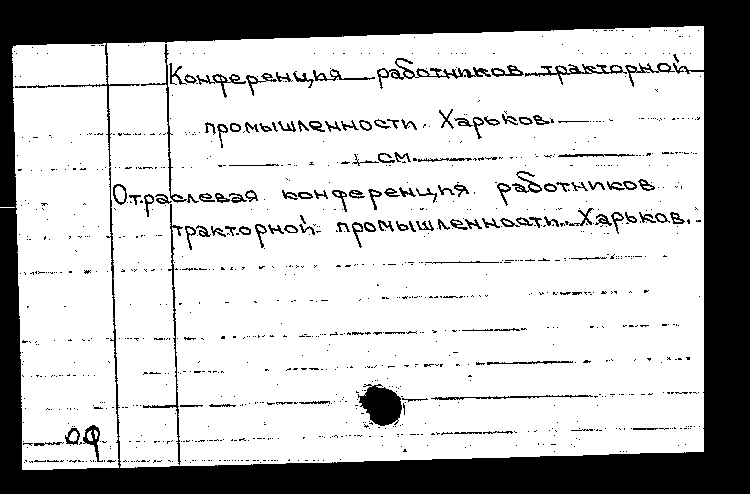 Конференция работников тракторной
промышленности. Харьков.
см.
Отраслевая конференция работников
тракторной промышленности. Харьков.
оф